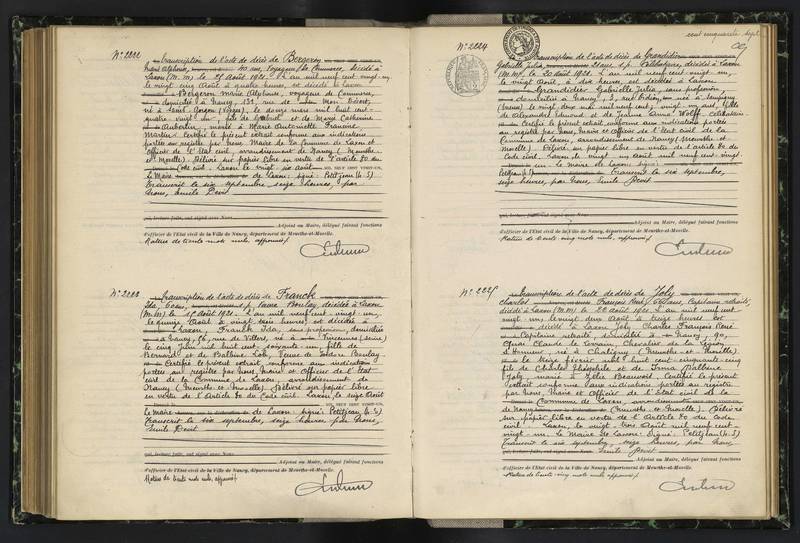 cent cinquante sept
N° 2222
Transcription de l'acte de décès de Bergeron
Marie Alphonse, 40 ans, Voyageur de Commerce, décédé à
Laxou (M.M) le 25 Août 1921. L'an mil neuf cent vingt-un,
le vingt cinq Août à quatre heures, est décédé à Laxou
Bergeron Marie Alphonse, voyageur de Commerce,
domicilié à Nancy, 131, rue de Mon Désert,
né à
(Vosges), le douze mars mil huit cent
quatre vingt un, fils de Gabriel et de Marie Catherine
Aubertin, marié à Marie Antoinette Francine
Martin. Certifié le présent extrait conforme aux indications
portées au registre par nous Maire de la Commune de Laxou et
Officier de l'Etat civil, arrondissement de Nancy (Meurthe
et Moselle). Délivré sur papier libre en vertu de l'article 80 du
Code civil. Laxou le vingt six Août MIL NEUF CENT VINGT-UN,
Le Maire de Laxou: signé: Petitjean (L.S)
Transcrit le six septembre, seize heures, par
Nous, Emile Devit
qui, lecture faite, ont signé avec Nous
Adjoint au Maire, délégué faisant fonctions
d'officier de l'Etat civil de la Ville de Nancy, département de Meurthe-et-Moselle.
Rature de trente mots nuls, approuvé/.
N° 2223
Transcription de l'acte de décès de Franck
Ida, 60 ans, s.p. Veuve Boulay, décédée à Laxou
(M.M) le 15 Août 1921. L'an mil neuf cent vingt-un,
le quinze Août à vingt trois heures, est décédée à
Laxou, Franck Ida, sans profession, domiciliée
à Nancy, 56, rue de Villers, née à Vincennes (Seine)
le cinq Juin mil huit cent soixante un, fille de
Bernard et de Balbine Lob, Veuve de Isidore Boulay.
Certifié le présent extrait conforme aux indications
portées au registre par nous, Maire et Officier de l'Etat
civil de la Commune de Laxou, arrondissement de
Nancy (Meurthe-et-Moselle). Délivré sur papier libre
en vertu de l'Article 80 du Code civil. Laxou, le seize Août
MIL NEUF CENT VINGT-UN,
Le Maire de Laxou: signé: Petitjean (L.S)
Transcrit le six septembre, seize heures, par Nous,
Emile Devit
qui, lecture faite, ont signé avec Nous
Adjoint au Maire, délégué faisant fonctions
d'officier de l'Etat civil de la Ville de Nancy, département de Meurthe-et-Moselle.
Rature de trente mots nuls, approuvé/.
N° 2224
Transcription de l'acte de décès de Grandidier
Gabrielle Julia, 21 ans s.p. Célibataire, décédée à Laxou
(M.M) le 20 Août 1921. L'an mil neuf cent vingt-un,
le vingt Août, à dix heures, est décédée à Laxou
Grandidier Gabrielle Julia, sans profession,
domiciliée à Nancy, 3, rue
, née à
vingt mai mil neuf cent, fille
de Alexandre Edmond et de Jeanne Anna Wolff. célibataire.
Certifié le présent extrait conforme aux indications portées
au registre par nous, Maire et Officier de l'Etat civil de la
Commune de Laxou, arrondissement de Nancy (Meurthe et
Moselle). Délivré sur papier libre en vertu de l'article 80 du
Code civil. Laxou, le vingt un Août mil neuf cent vingt
un. Le Maire de Laxou signé:
Petitjean (L.S) Transcrit le six septembre,
seize heures, par Nous, Emile Devit
qui, lecture faite, ont signé avec Nous
Adjoint au Maire, délégué faisant fonctions
d'officier de l'Etat civil de la Ville de Nancy, département de Meurthe-et-Moselle.
Rature de trente cinq mots nuls, approuvé/.
N° 2225
Transcription de l'acte de décès de Joly
Charles François René, 65 ans, Capitaine retraité,
décédé à Laxou (M.M) le 22 Août 1921. L'an mil neuf cent
vingt-un, le vingt deux Août à treize heures est
décédé à Laxou Joly Charles François René
Capitaine retraité, domicilié à Nancy, 90,
Quai Claude le Lorrain, Chevalier de la Légion
d'Honneur, né à Chaligny (Meurthe et Moselle)
le treize février mil huit cent cinquante-cinq
fils de Charles Théophile et de Irma Balbine
Joly, marié à Zélie Beauvois. Certifié le présent
extrait conforme aux indications portées au registre
par nous, Maire et Officier de l'Etat civil de la
Commune de Laxou, arrondissement
de Nancy (Meurthe et Moselle). Délivré
sur papier libre en vertu de l'Article 80 du Code
civil. Laxou, le vingt trois Août mil neuf cent
vingt-un. Le Maire de Laxou: Signé: Petitjean (L.S)
Transcrit le six septembre, seize heures, par Nous,
qui, lecture faite, ont signé avec Nous Emile Devit
Adjoint au Maire, délégué faisant fonctions
d'officier de l'Etat civil de la Ville de Nancy, département de Meurthe-et-Moselle.
Rature de vingt cinq mots nuls, approuvé/.